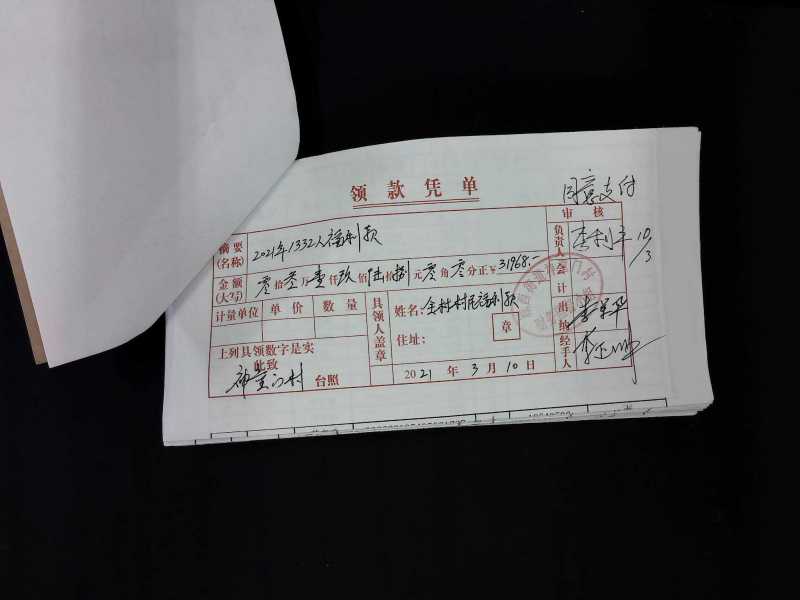 领款凭单
同意支付
摘要(名称) 2021年1332人福利款
审核
负责人 李利平 10/3
金额(大写) 零拾叁万壹仟玖佰陆拾捌元零角零分正¥31968.-
会计
计量单位 单价 数量
具领人盖章
姓名: 全村村民福利款
住址:
章
出纳
上列具领数字是实
此致
台照
2021年3月10日
经手人